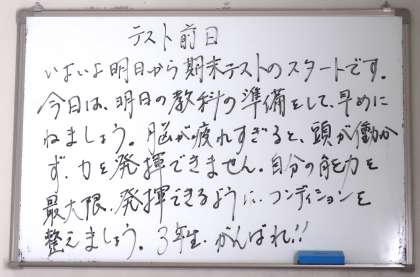 テスト前日
いよいよ明日から期末テストのスタートです。
今日は、明日の教科の準備をして、早めに
ねましょう。脳が疲れすぎると、頭が働か
ず、力を発揮できません。自分の能力を
最大限、発揮できるように、コンディションを
整えましょう。3年生、がんばれ!!